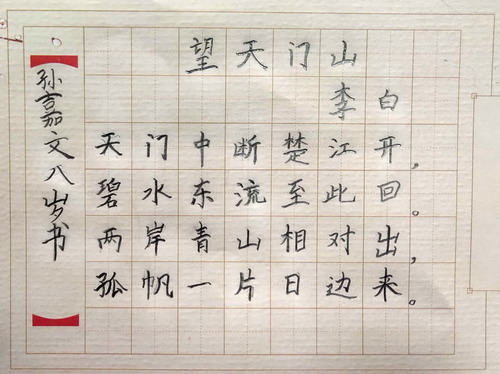 望天门山
李白
天门中断楚江开，
碧水东流至此回。
两岸青山相对出，
孤帆一片日边来。
孙嘉文八岁书